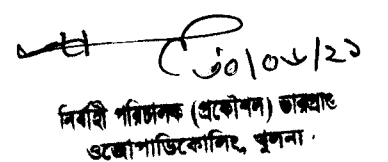 ৩০/০৬/২১
নির্বাহী পরিচালক (প্রকৌশল) ভারপ্রাপ্ত
ওজোপাডিকোলিঃ, খুলনা।